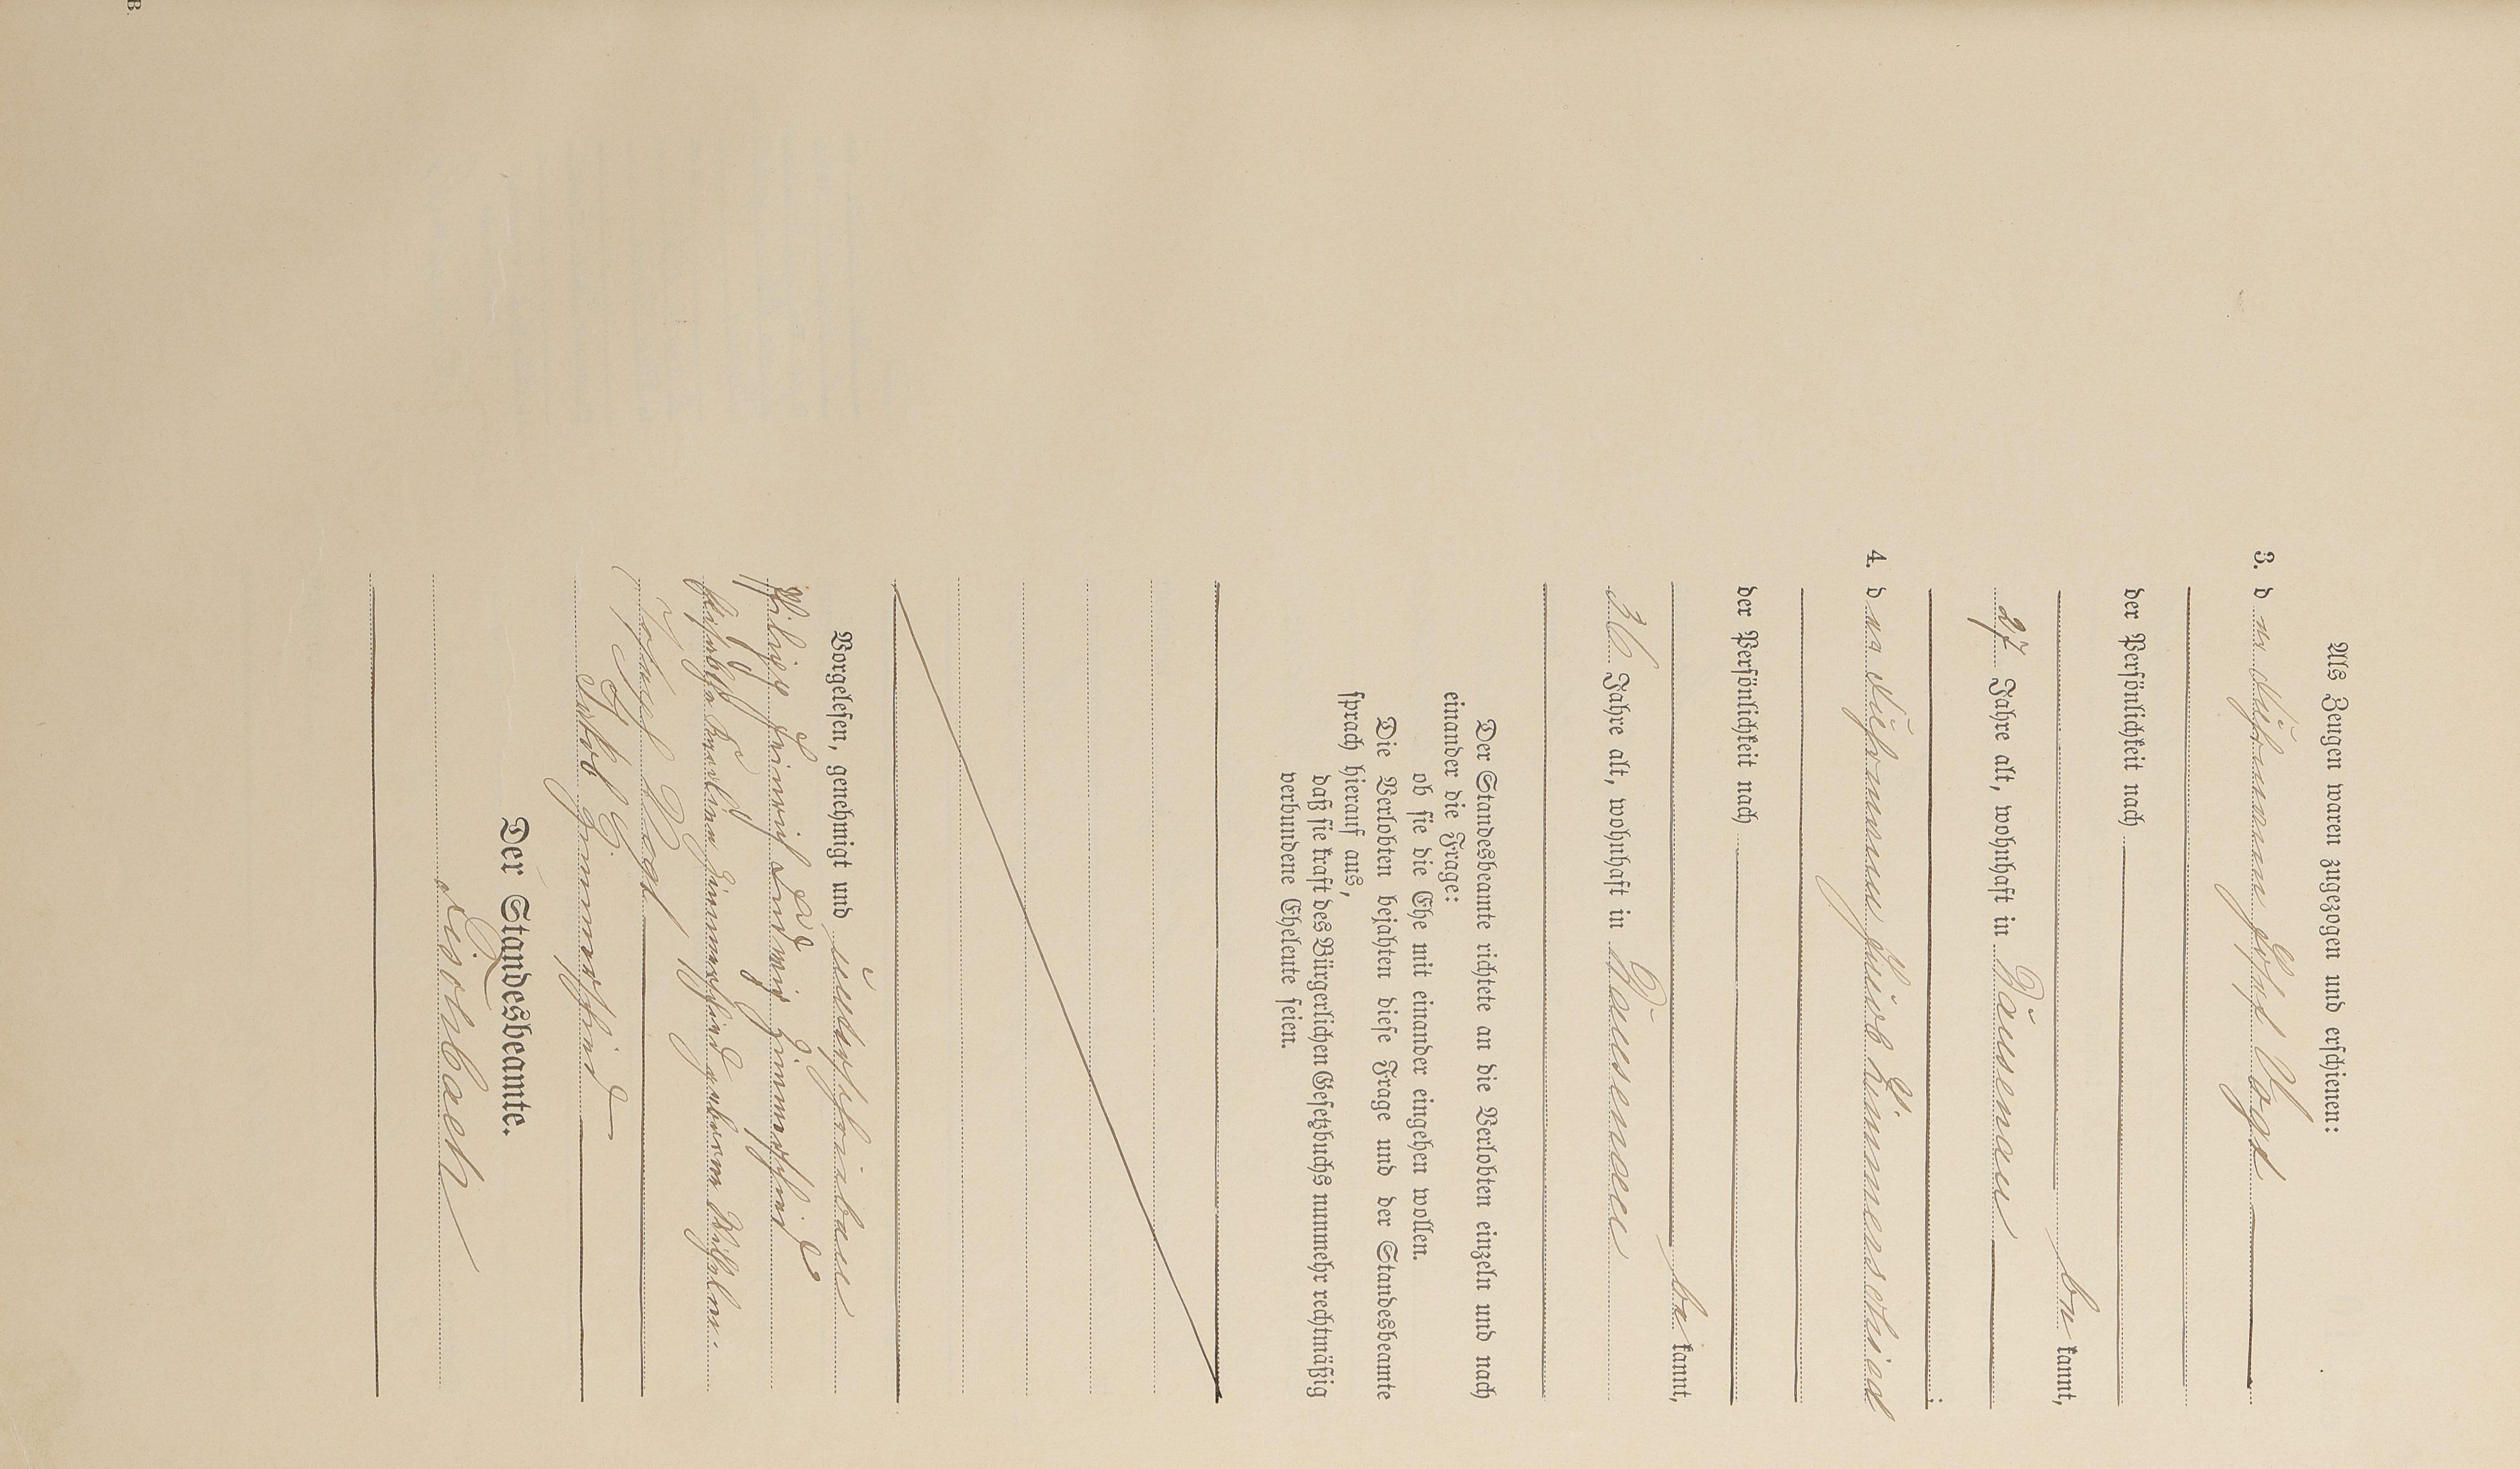 Als Zeugen waren zugezogen und erschienen:
3. der Tüfner Josef Vogt
der Persönlichkeit nach
be kannt,
27 Jahre alt, wohnhaft in Dausenau
;
4. der Jakob Zimmerschied
der Persönlichkeit nach
be kannt,
36 Jahre alt, wohnhaft in Dausenau
Der Standesbeamte richtete an die Verlobten einzeln und nach
einander die Frage:
ob sie die Ehe mit einander eingehen wollen.
Die Verlobten bejahten diese Frage und der Standesbeamte
sprach hierauf aus,
daß sie kraft des Bürgerlichen Gesetzbuchs nunmehr rechtmäßig
verbundene Eheleute seien.
Vorgelesen, genehmigt und unterschrieben
Philipp Heinrich Ludwig Zimmerschied
Karoline Zimmerschied geborene Wilhelmi.
Josef Vogt
Jakob Zimmerschied
Der Standesbeamte.
B.